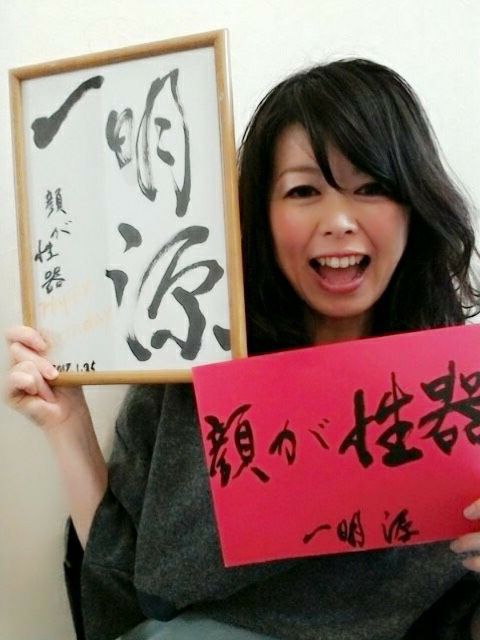 明源
一
顔が性器
Happy
Birthday
2017.1.25
顔が性器
一明源